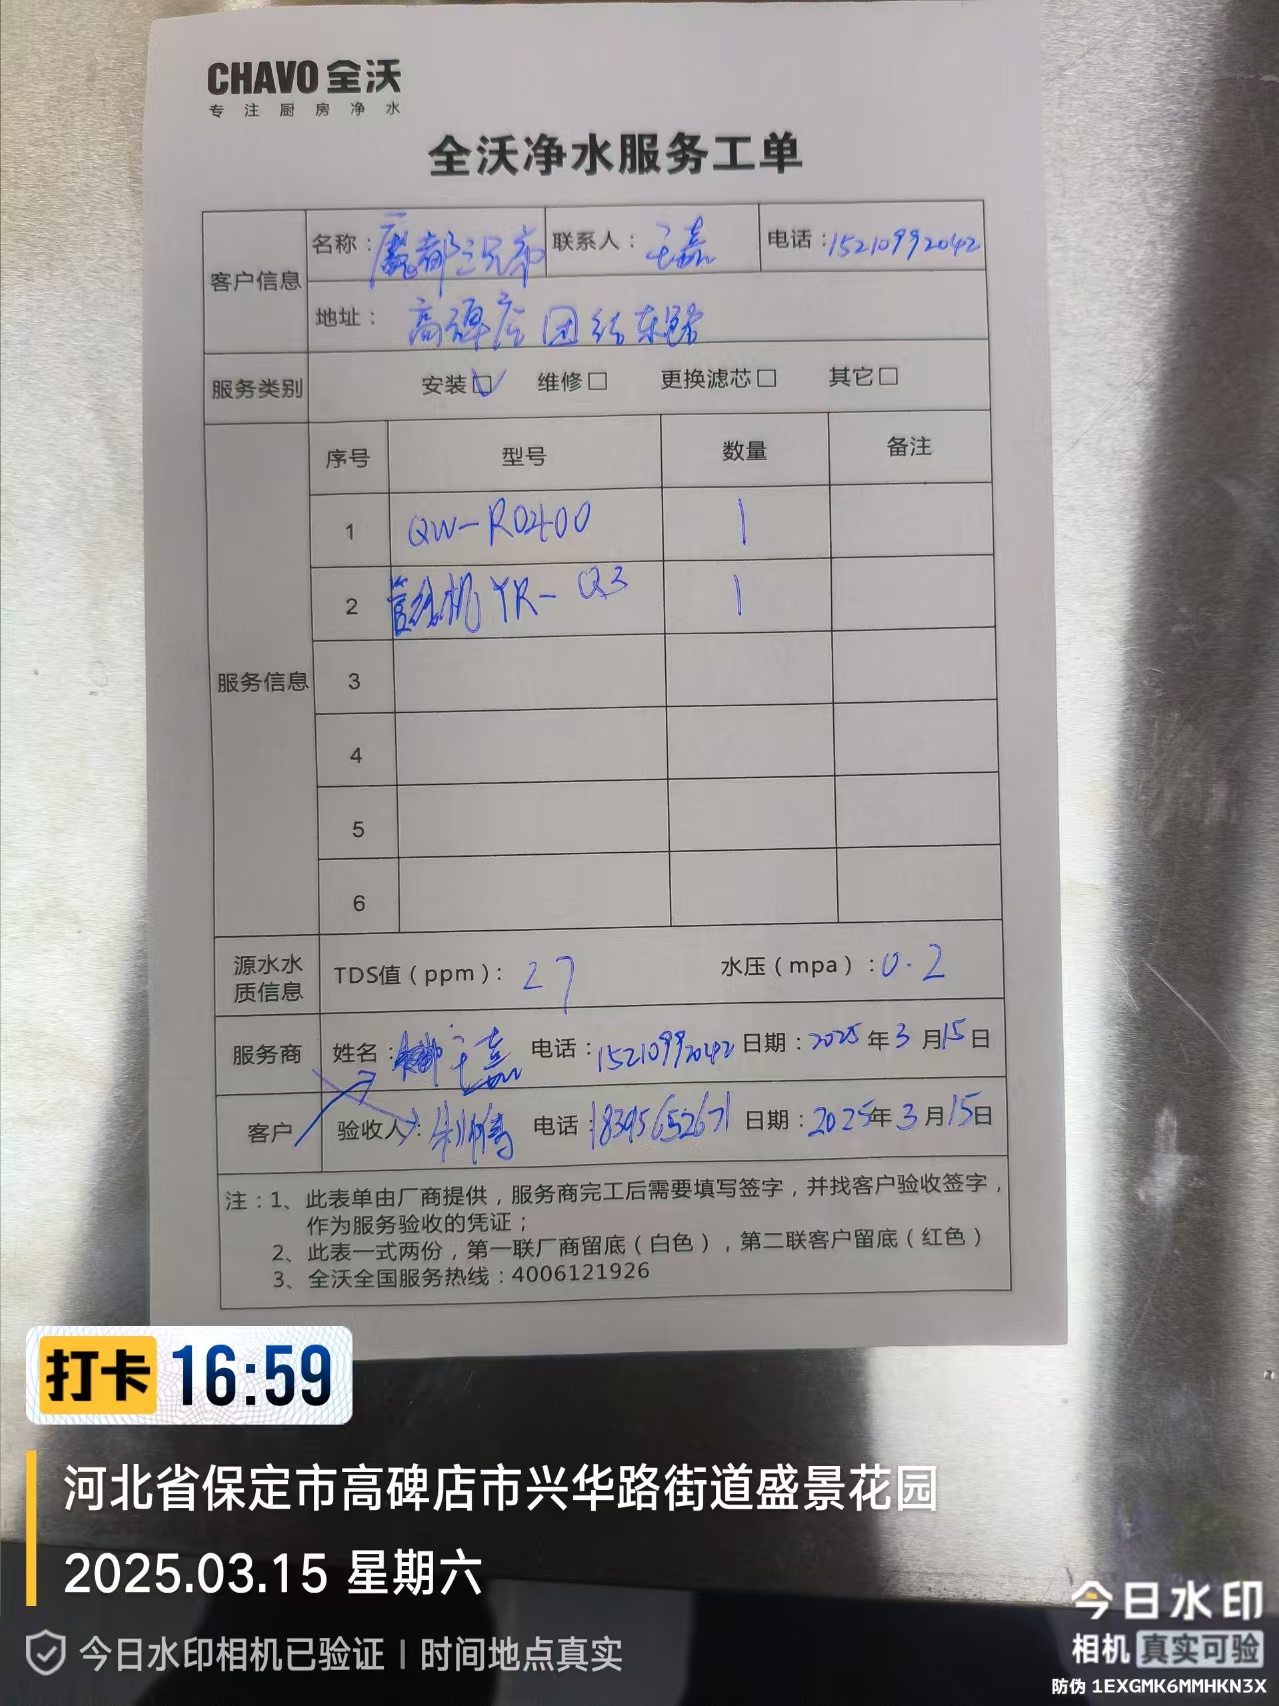 CHAVO 全沃
专注厨房净水
全沃净水服务工单
客户信息
名称：都三兄弟 联系人：王嘉 电话：15210992042
地址：高碑店团结东路
服务类别 安装☑ 维修□ 更换滤芯□ 其它□
服务信息
序号 型号 数量 备注
1 QW-RO400 1
2 管线机 YR-Q3 1
3
4
5
6
源水水质信息 TDS值（ppm）：27 水压（mpa）：0.2
服务商 姓名：王嘉 电话：15210992042 日期：2025年3月15日
客户 验收人： 电话：18395652671 日期：2025年3月15日
注：1、此表单由厂商提供，服务商完工后需要填写签字，并找客户验收签字，
作为服务验收的凭证；
2、此表一式两份，第一联厂商留底（白色），第二联客户留底（红色）
3、全沃全国服务热线：4006121926
打卡 16:59
河北省保定市高碑店市兴华路街道盛景花园
2025.03.15 星期六
今日水印相机已验证 | 时间地点真实
今日水印
相机 真实可验
防伪 1EXGMK6MMHKN3X